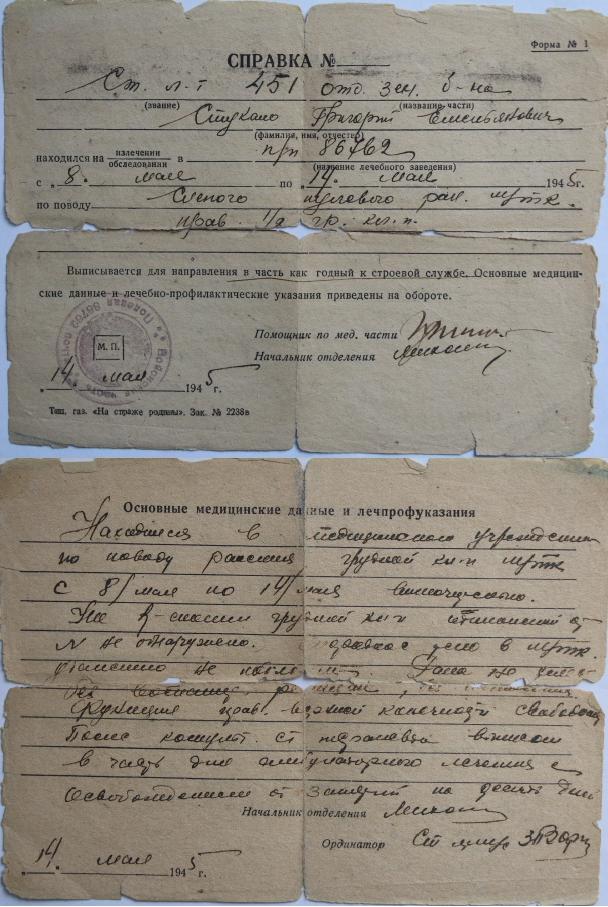 Форма № 1
СПРАВКА №
Ст. л-т 451 отд. зен. б-на
(звание) (название части)
Григорий Емельянович
(фамилия, имя, отчество)
находился на излечении обследовании в 86762
(название лечебного заведения)
с „8. мая по „14. мая 1945 г.
по поводу Слепого пулевого ран. мягк.
прав. гр. кл.
Выписывается для направления в часть как годный к строевой службе. Основные медицин-
ские данные и лечебно-профилактические указания приведены на обороте.
Помощник по мед. части
М. П.
Начальник отделения
„14 мая 1945 г.
Тип. газ. «На страже родины». Зак. № 2238в
Основные медицинские данные и лечпрофуказания
Находился в медицинском учреждении
по поводу ранения грудной кл-и мягк
с 8/мая по 14/мая включительно.
На грудной кл-и отклонений от
N не обнаружено. тело в мягк.
не Рана
Функция прав. верхней конечности свободная
После консульт. терапевта выписан
в часть для амбулаторного лечения с
освобождением от занятий на десять дней
Начальник отделения
Ординатор Ст
„14. мая 1945 г.